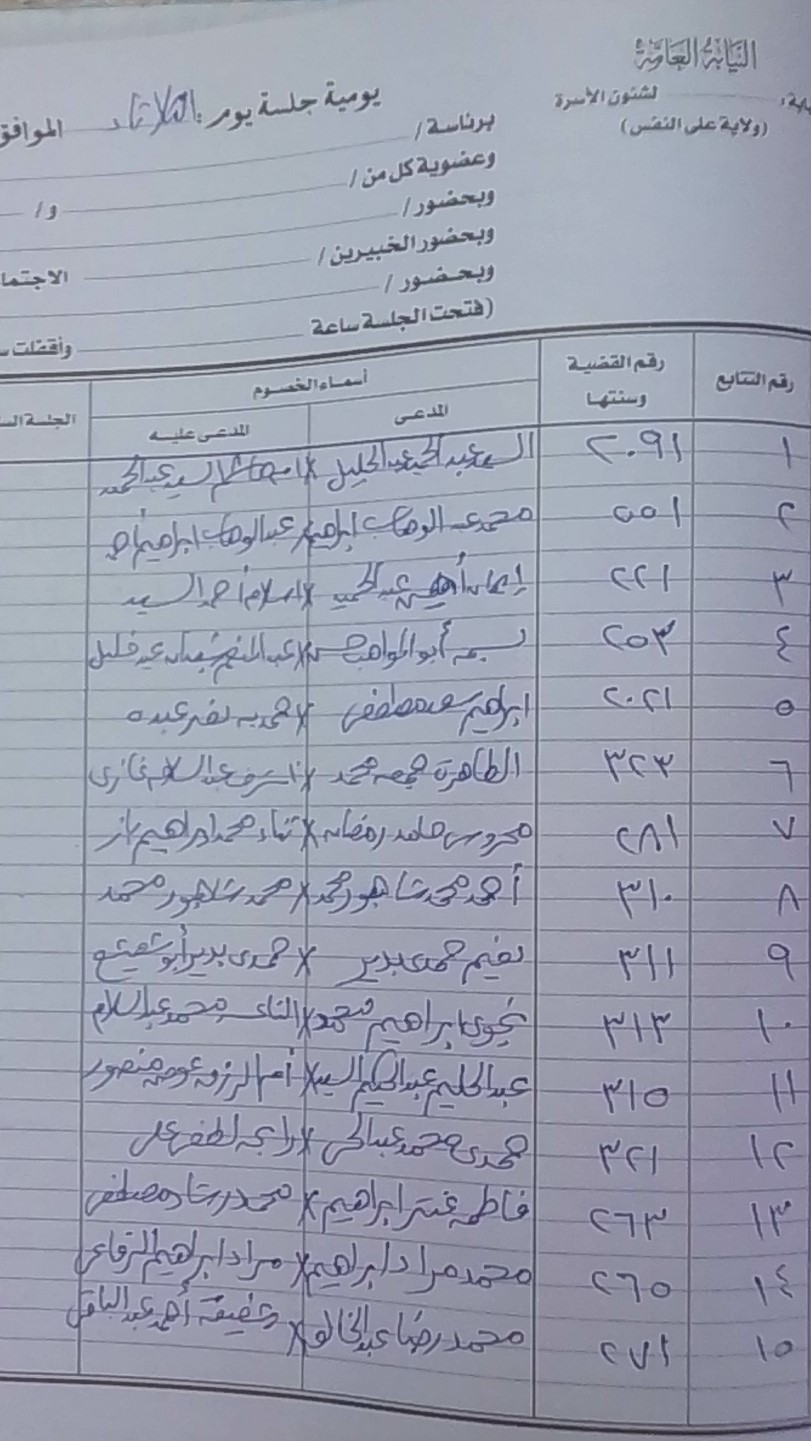 النيابة العامة
لشئون الأسرة
(ولاية على النفس)
يومية جلسة يوم: الثلاثاء الموافق
برئاسة /
وعضوية كل من / و/
وبحضور /
وبحضور الخبيرين / الاجتما
وبحضور /
(فتحت الجلسة ساعة وأقفلت س
رقم التتابع رقم القضية وسنتها أسماء الخصوم
المدعى المدعى عليه
١ ٢٠٩١ السيد عبد الحميد عبد الجليل x السيد عبد الحميد
٢ ٥٥١ محمد عبد الوهاب ابراهيم x عبد الوهاب ابراهيم
٣ ٢٢١ إيمان عبد الحميد x اسلام أحمد السيد
٤ ٢٥٣ بسمه أبو المواهب حسن x عبد المنعم شعبان عيد خليل
٥ ٢٠٢١ ابراهيم سعد مصطفى x نصر عبده
٦ ٣٢٣ الطاهرة جمعه محمد x اشرف عبد السلام غازى
٧ ٢٨١ محروس حامد رمضان x ثناء محمد ابراهيم باز
٨ ٣١٠ أحمد محمد شاهور محمد x محمد شاهور محمد
٩ ٣١١ نعيم حمدى بدير x حمدى بدير أبو شعيشع
١٠ ٣١٣ نجوى ابراهيم محمد x محمد عبد السلام
١١ ٣١٥ عبد الحليم عبد الحكيم السيد x عوض منصور
١٢ ٣٢١ حمدى محمد عبد الحى x لطفى على
١٣ ٢٦٣ فاطمه عنتر ابراهيم x محمد رشاد مصطفى
١٤ ٢٦٥ محمد مراد ابراهيم x مراد ابراهيم الرفاعى
١٥ ٢٧١ محمد رضا عبد الخالق x عفيفة أحمد عبد الباقى